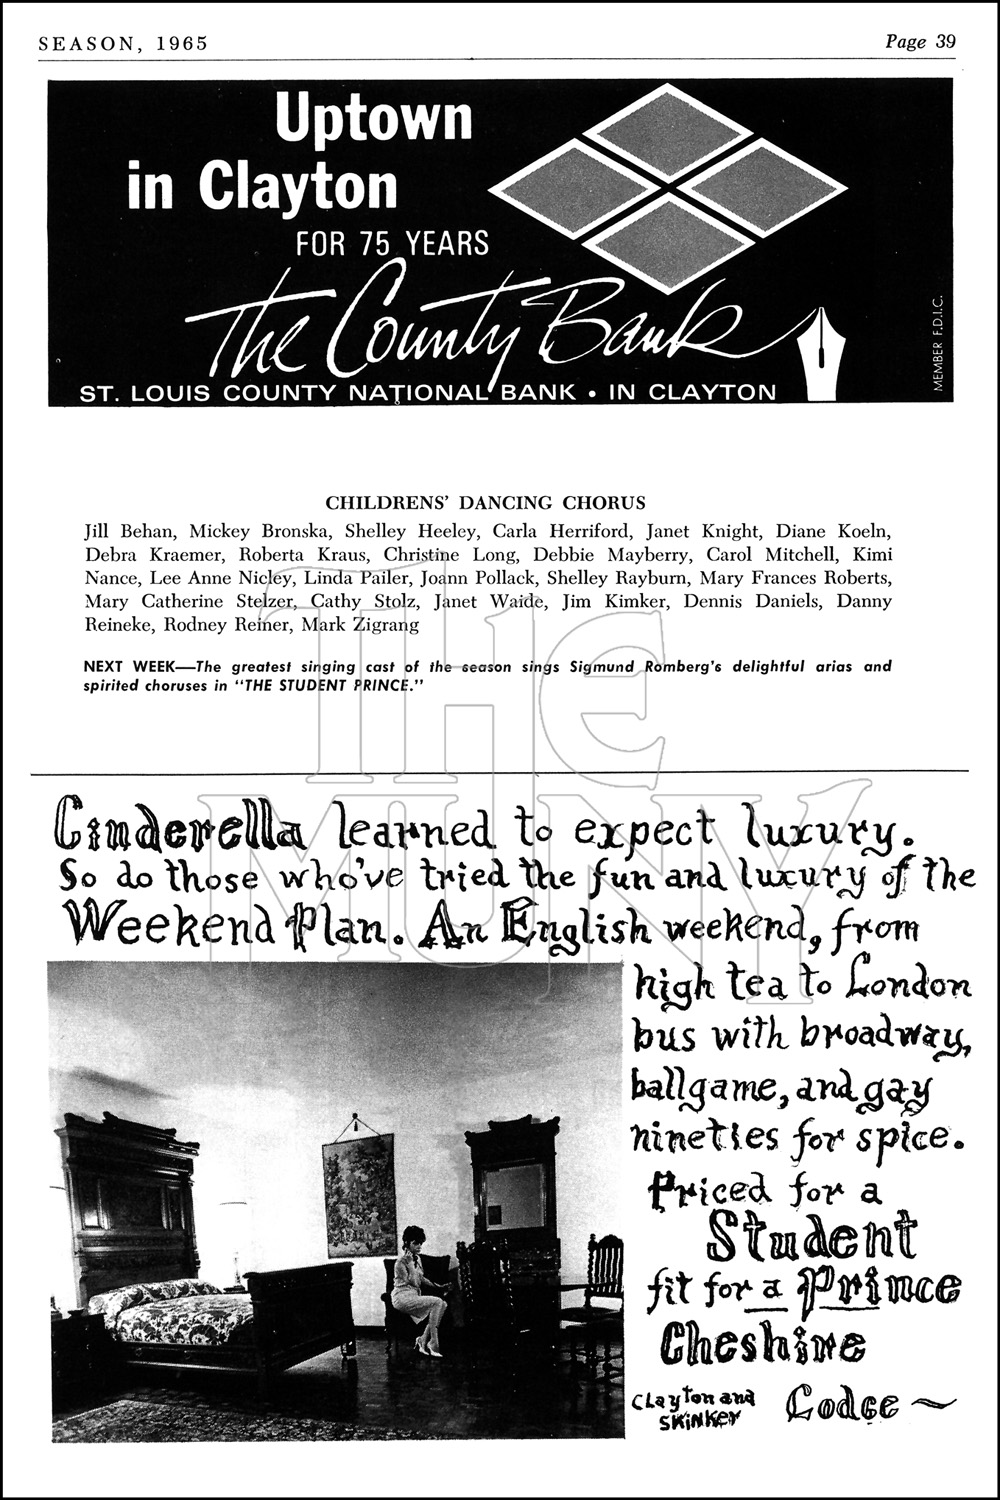 SEASON, 1965
Page 39
Uptown
in Clayton
FOR 75 YEARS
The County Bank
ST. LOUIS COUNTY NATIONAL BANK • IN CLAYTON
MEMBER F.D.I.C.
CHILDRENS' DANCING CHORUS
Jill Behan, Mickey Bronska, Shelley Heeley, Carla Herriford, Janet Knight, Diane Koeln,
Debra Kraemer, Roberta Kraus, Christine Long, Debbie Mayberry, Carol Mitchell, Kimi
Nance, Lee Anne Nicley, Linda Pailer, Joann Pollack, Shelley Rayburn, Mary Frances Roberts,
Mary Catherine Stelzer, Cathy Stolz, Janet Waide, Jim Kimker, Dennis Daniels, Danny
Reineke, Rodney Reiner, Mark Zigrang
NEXT WEEK—The greatest singing cast of the season sings Sigmund Romberg's delightful arias and
spirited choruses in "THE STUDENT PRINCE."
THE
MUNY
Cinderella learned to expect luxury.
So do those who've tried the fun and luxury of the
Weekend Plan. An English weekend, from
high tea to London
bus with broadway,
ballgame, and gay
nineties for spice.
Priced for a
Student
fit for a Prince
Cheshire
Lodge ~
Clayton and
Skinker